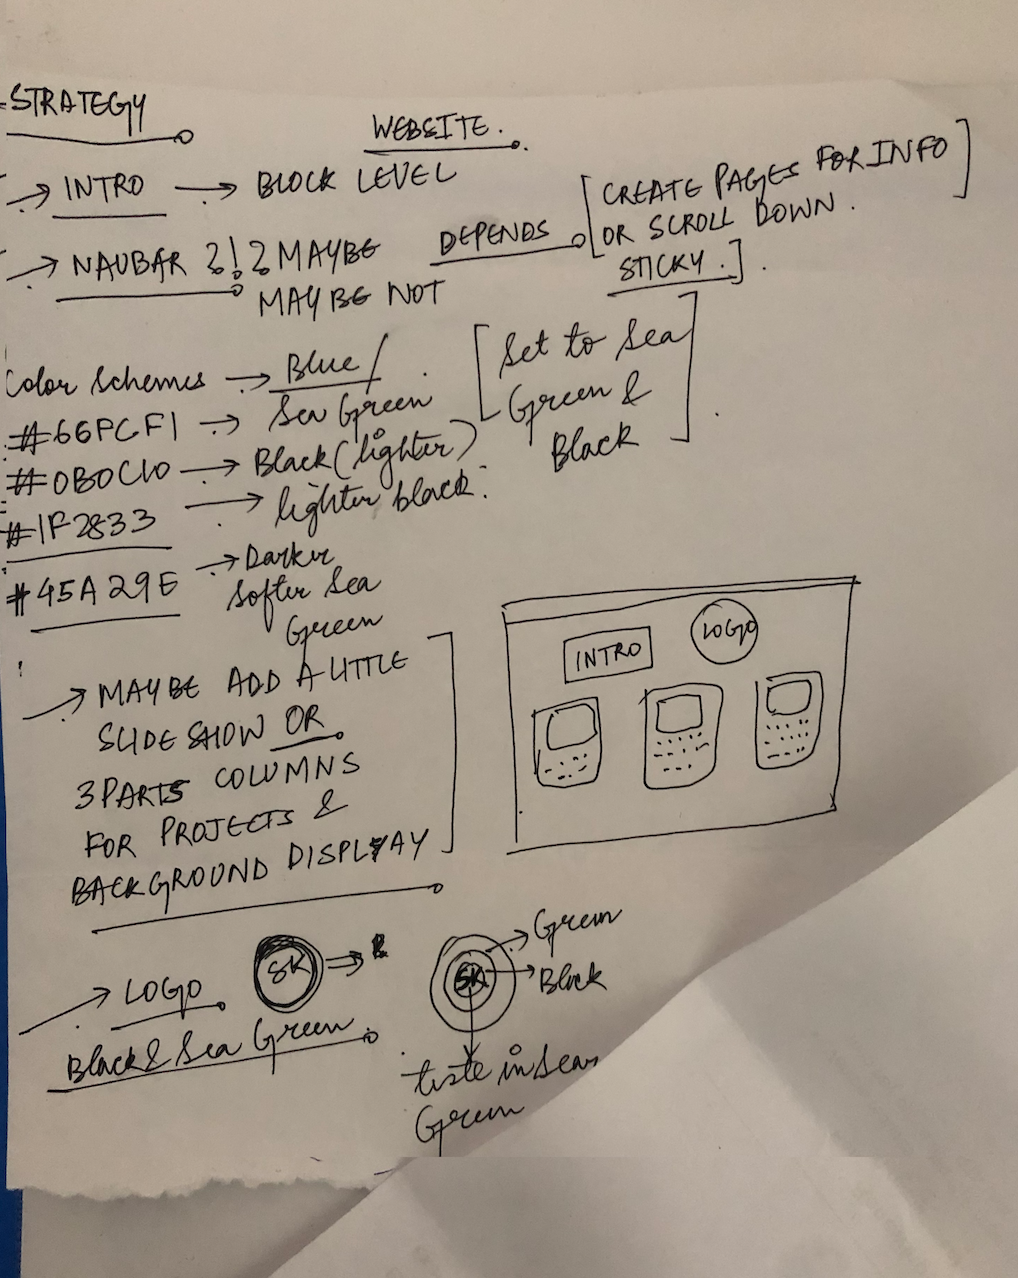 STRATEGY
WEBSITE.
→ INTRO → BLOCK LEVEL
→ NAVBAR ?!? MAYBE
MAYBE NOT
DEPENDS
[CREATE PAGES FOR INFO]
OR SCROLL DOWN.
STICKY.].
Color Schemes → Blue/
Sea Green.
[Set to Sea
Green &
Black].
#66PCF1 →
#0B0C10 → Black (lighter)
#1F2833 → lighter black.
#45A29E → Darker
Softer Sea
Green
→ MAYBE ADD A LITTLE
SLIDE SHOW OR
3 PARTS COLUMNS
FOR PROJECTS &
BACKGROUND DISPLAY
INTRO
LOGO
→ LOGO
SK
Black & Sea Green.
SK
→ Green
→ Black
in Sea
Green